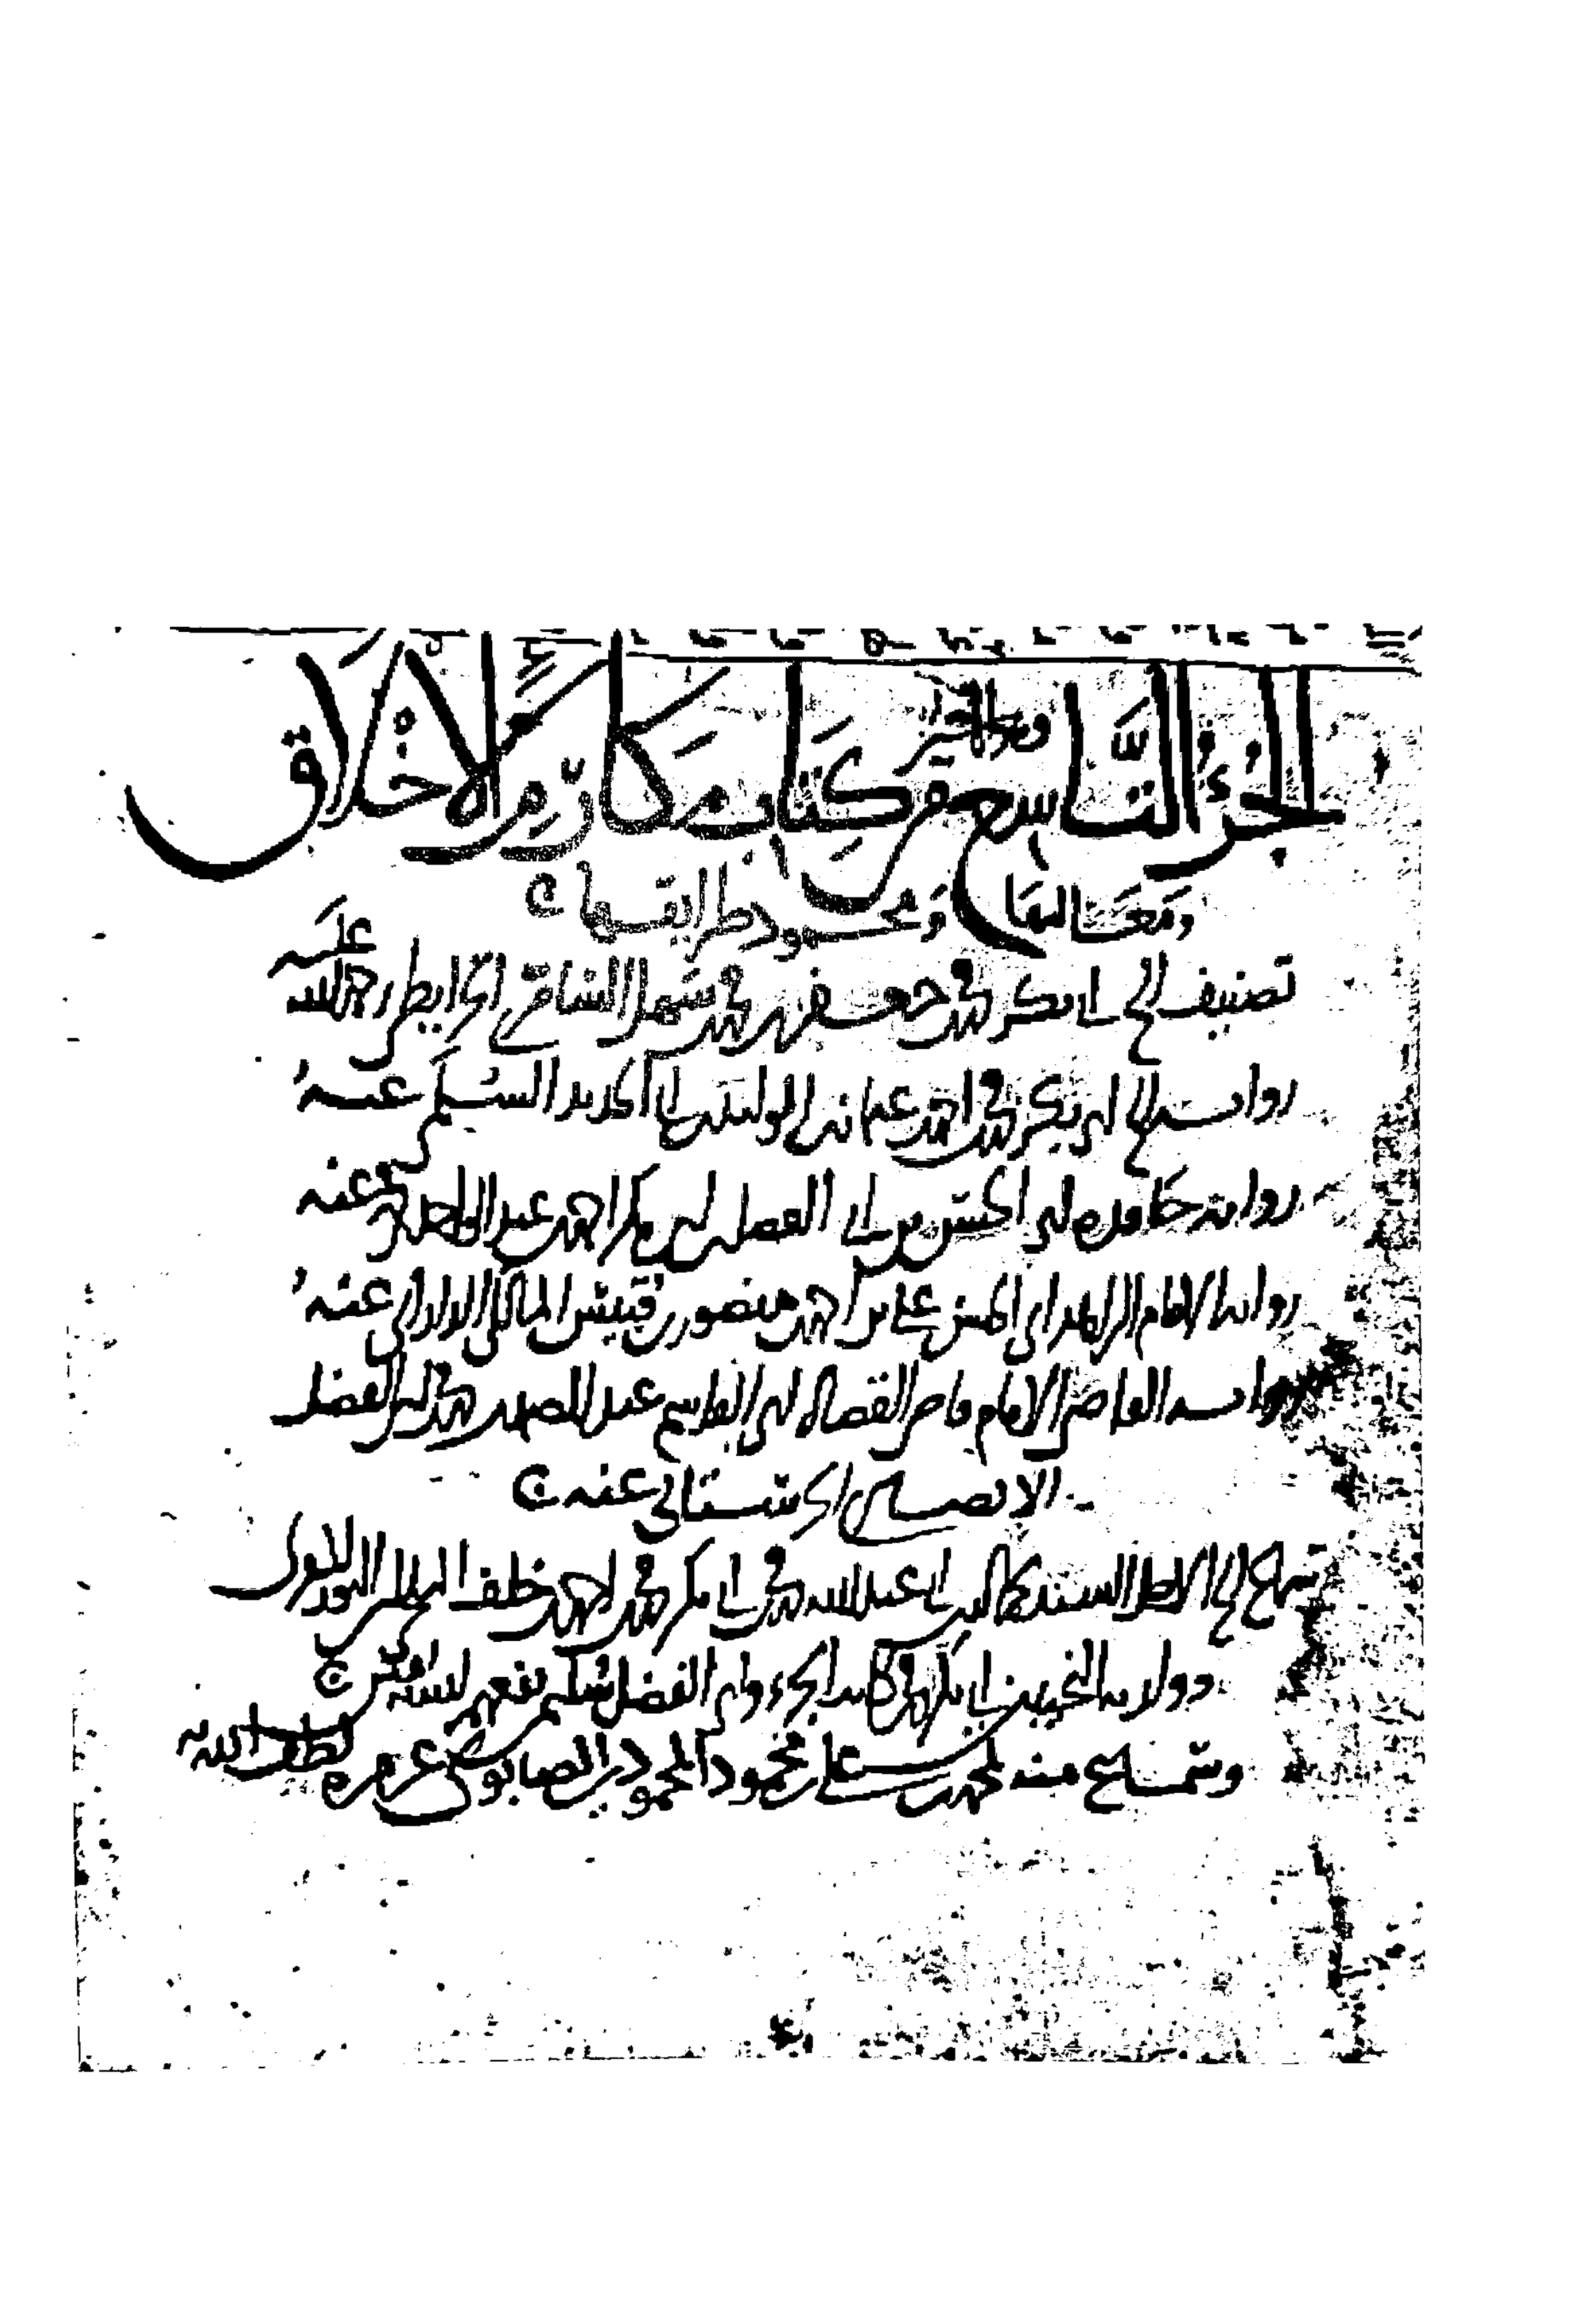 الجزء الثاسع من كتاب مكارم الاخلاق
ومعاليها ومحمود طرايقها
تصنيف الشيخ ابي بكر محمد بن جعفر بن محمد بن سهل السامري الخرايطي رحمة الله عليه
رواية ابي بكر محمد بن احمد بن عثمان بن الوليد بن ابي الحديد السلمي عنه
رواية حافده ابي الحسن بن ابي الفضل ابي بكر احمد بن عبد الواحد بن محمد عنه
رواية الامام الزاهد ابي الحسن علي بن احمد بن منصور بن قبيس المالكي الغساني عنه
رواية القاضي الامام قاضي القضاة ابي القاسم عبد الصمد بن محمد بن ابي الفضل
الانصاري الحرستاني عنه
سماع ابي عبد الله محمد بن ابي بكر محمد بن احمد بن خلف البلخي
ولولديه النجيبين ابي بكر محمد وابي الفضل سليم نفعهم الله
وسماع منه لمحمد بن علي بن محمود المحمودي الصابوني لطف الله به